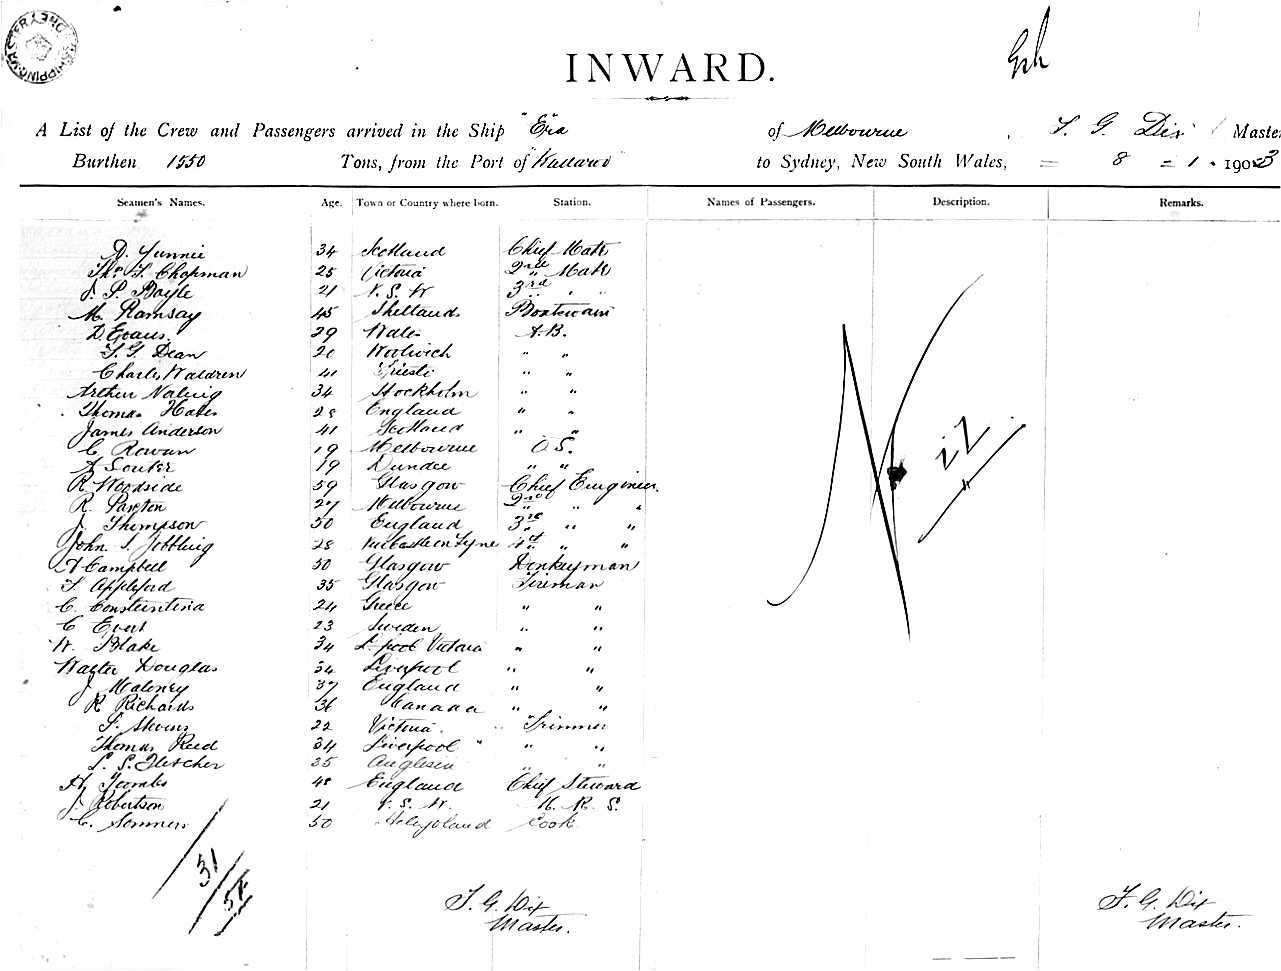 SHIPPING MASTER SYDNEY
INWARD.
A List of the Crew and Passengers arrived in the Ship "Era of Melbourne, T. G. Dix Master
Burthen 1550 Tons, from the Port of "Wallaroo" to Sydney, New South Wales, = 8 = 1 . 1903
Seamen's Names. Age. Town or Country where born. Station. Names of Passengers. Description. Remarks.
34 Scotland Chief Mate
Thos. T. Chapman 25 Victoria 2nd " Mate
J. P. Boyle 21 N. S. W 3rd " " "
M. Ramsay 45 Shetlands Boatswain
D Evans. 29 Wales A.B.
T. G. Dean 20 Woolwich " "
Charles Waldren 41 Trieste " "
34 Stockholm " "
Thomas 28 England " "
James Anderson 41 Scotland " "
C. Rowan 19 Melbourne O S.
A Souter 19 Dundee " "
R. Woodside 59 Glasgow Chief Enginier.
R. Paxton 27 Melbourne 2nd " " "
J. Thompson 50 England 3rd " " "
John. S. 28 Newcastle on Tyne 4th " "
A Campbell 50 Glasgow Donkeyman
T. Appleford 35 Glasgow Fireman
C. 24 Greece " "
C Evert 23 Sweden " "
W. Blake 34 L-pool Victoria " "
Walter Douglas 34 Liverpool " "
J Maloney 37 England " "
R Richards 36 Canada " "
S. Stevens 22 Victoria. Trimmer
Thomas Reed 34 Liverpool " " "
L. S. Fletcher 35 Anglesea " "
H Toombs 48 England Chief Steward
J. Robertson 21 N. S. W. M. R. S.
C. Sommers 50 Heligoland Cook
Nil
31
T. G. Dix
Master.
T. G. Dix
Master.